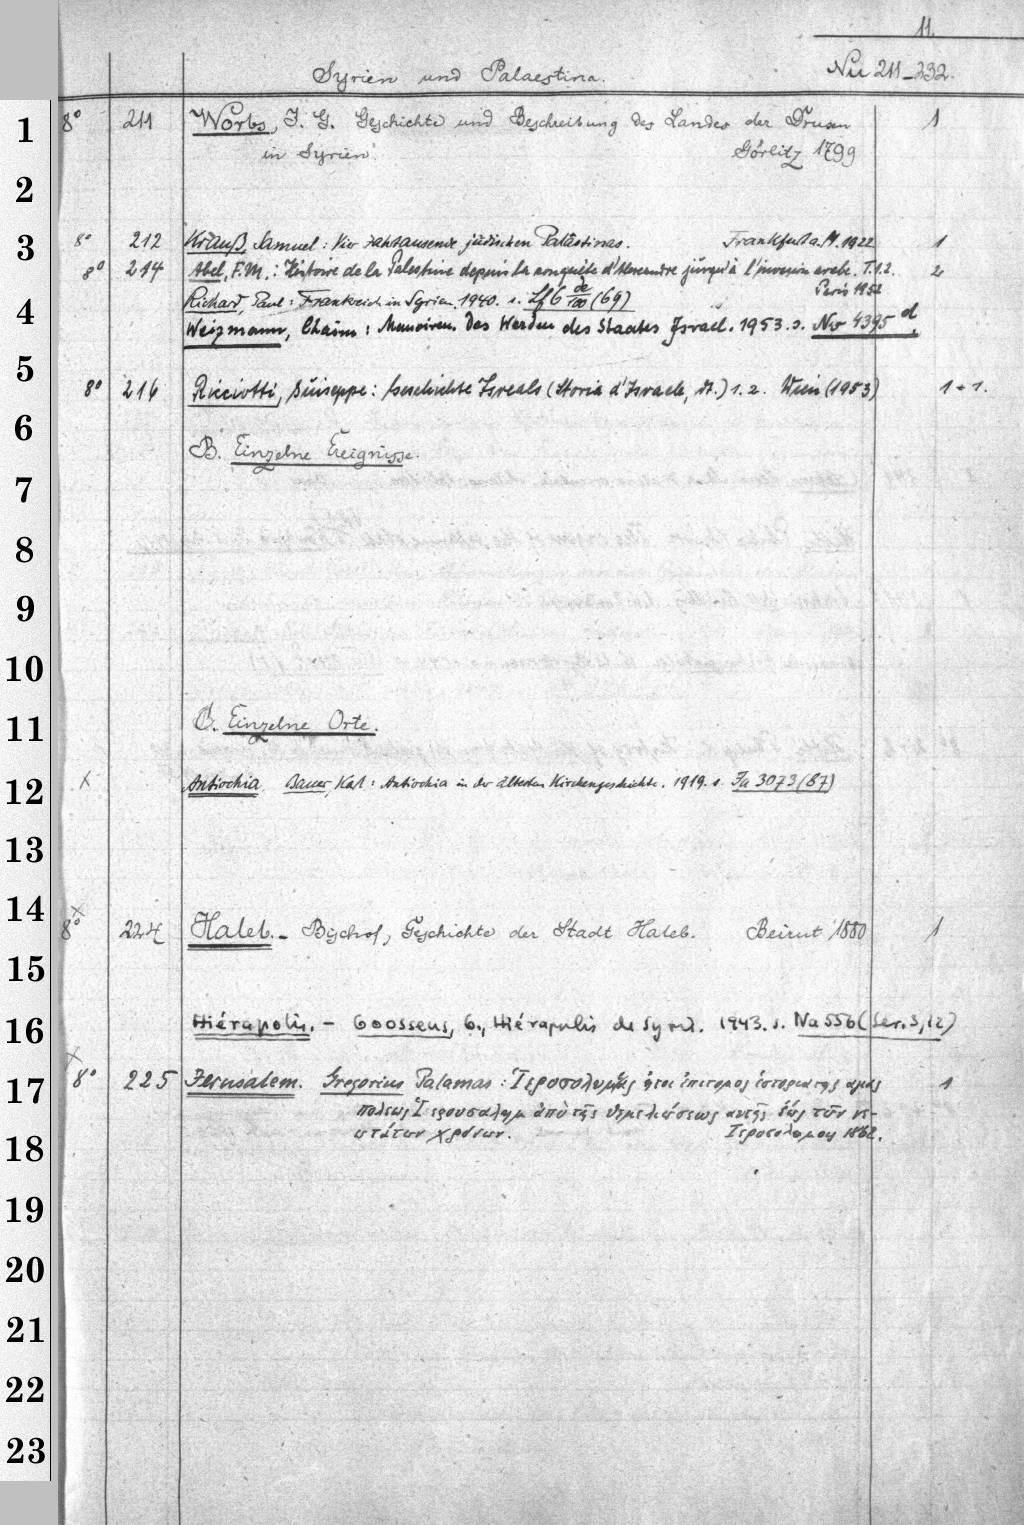 11.
Syrien und Palaestina. Nu 211-232.
1 8° 211 Worbs, J. G. Geschichte und Beschreibung des Landes der Drusen 1
in Syrien. Görlitz 1799
2
3 8° 212 Krauß, Samuel: Vier Jahrtausende jüdischen Palästinas. Frankfurt a. M. 1922 1
8° 214 Abel, F. M.: Histoire de la Palestine depuis la conquête d'Alexandre jusqu'à l'invasion arabe. T. 1.2. 2
Paris 1952
4 Richard, Paul: Frankreich in Syrien. 1940. s. Lf 6 de/100 (69)
Weizmann, Chaim: Memoiren. Das Werden des Staates Israel. 1953. s. No 4395 d.
5 8° 216 Ricciotti, Giuseppe: Geschichte Israels (Storia d'Israele, dt.) 1. 2. Wien (1953) 1+1.
6
B. Einzelne Ereignisse.
7
8
9
10
11 C. Einzelne Orte.
12 x Antiochia Bauer, Karl: Antiochia in der ältesten Kirchengeschichte. 1919. s. Ja 3073 (87)
13
14 x
8° 224 Haleb. - Bischof, Geschichte der Stadt Haleb. Beirut 1880 1
15
16 Hiérapolis. - Goossens, G., Hiérapolis de Syrie. 1943. s. Na 556 (Ser. 3, 12)
x
17 8° 225 Jerusalem. Gregorius Palamas: ἤτοι ἐπίτομος 1
ἀπὸ τῆς θεμελιώσεως αὐτῆς ἕως τῶν νε-
18 ωτάτων χρόνων. 1862.
19
20
21
22
23